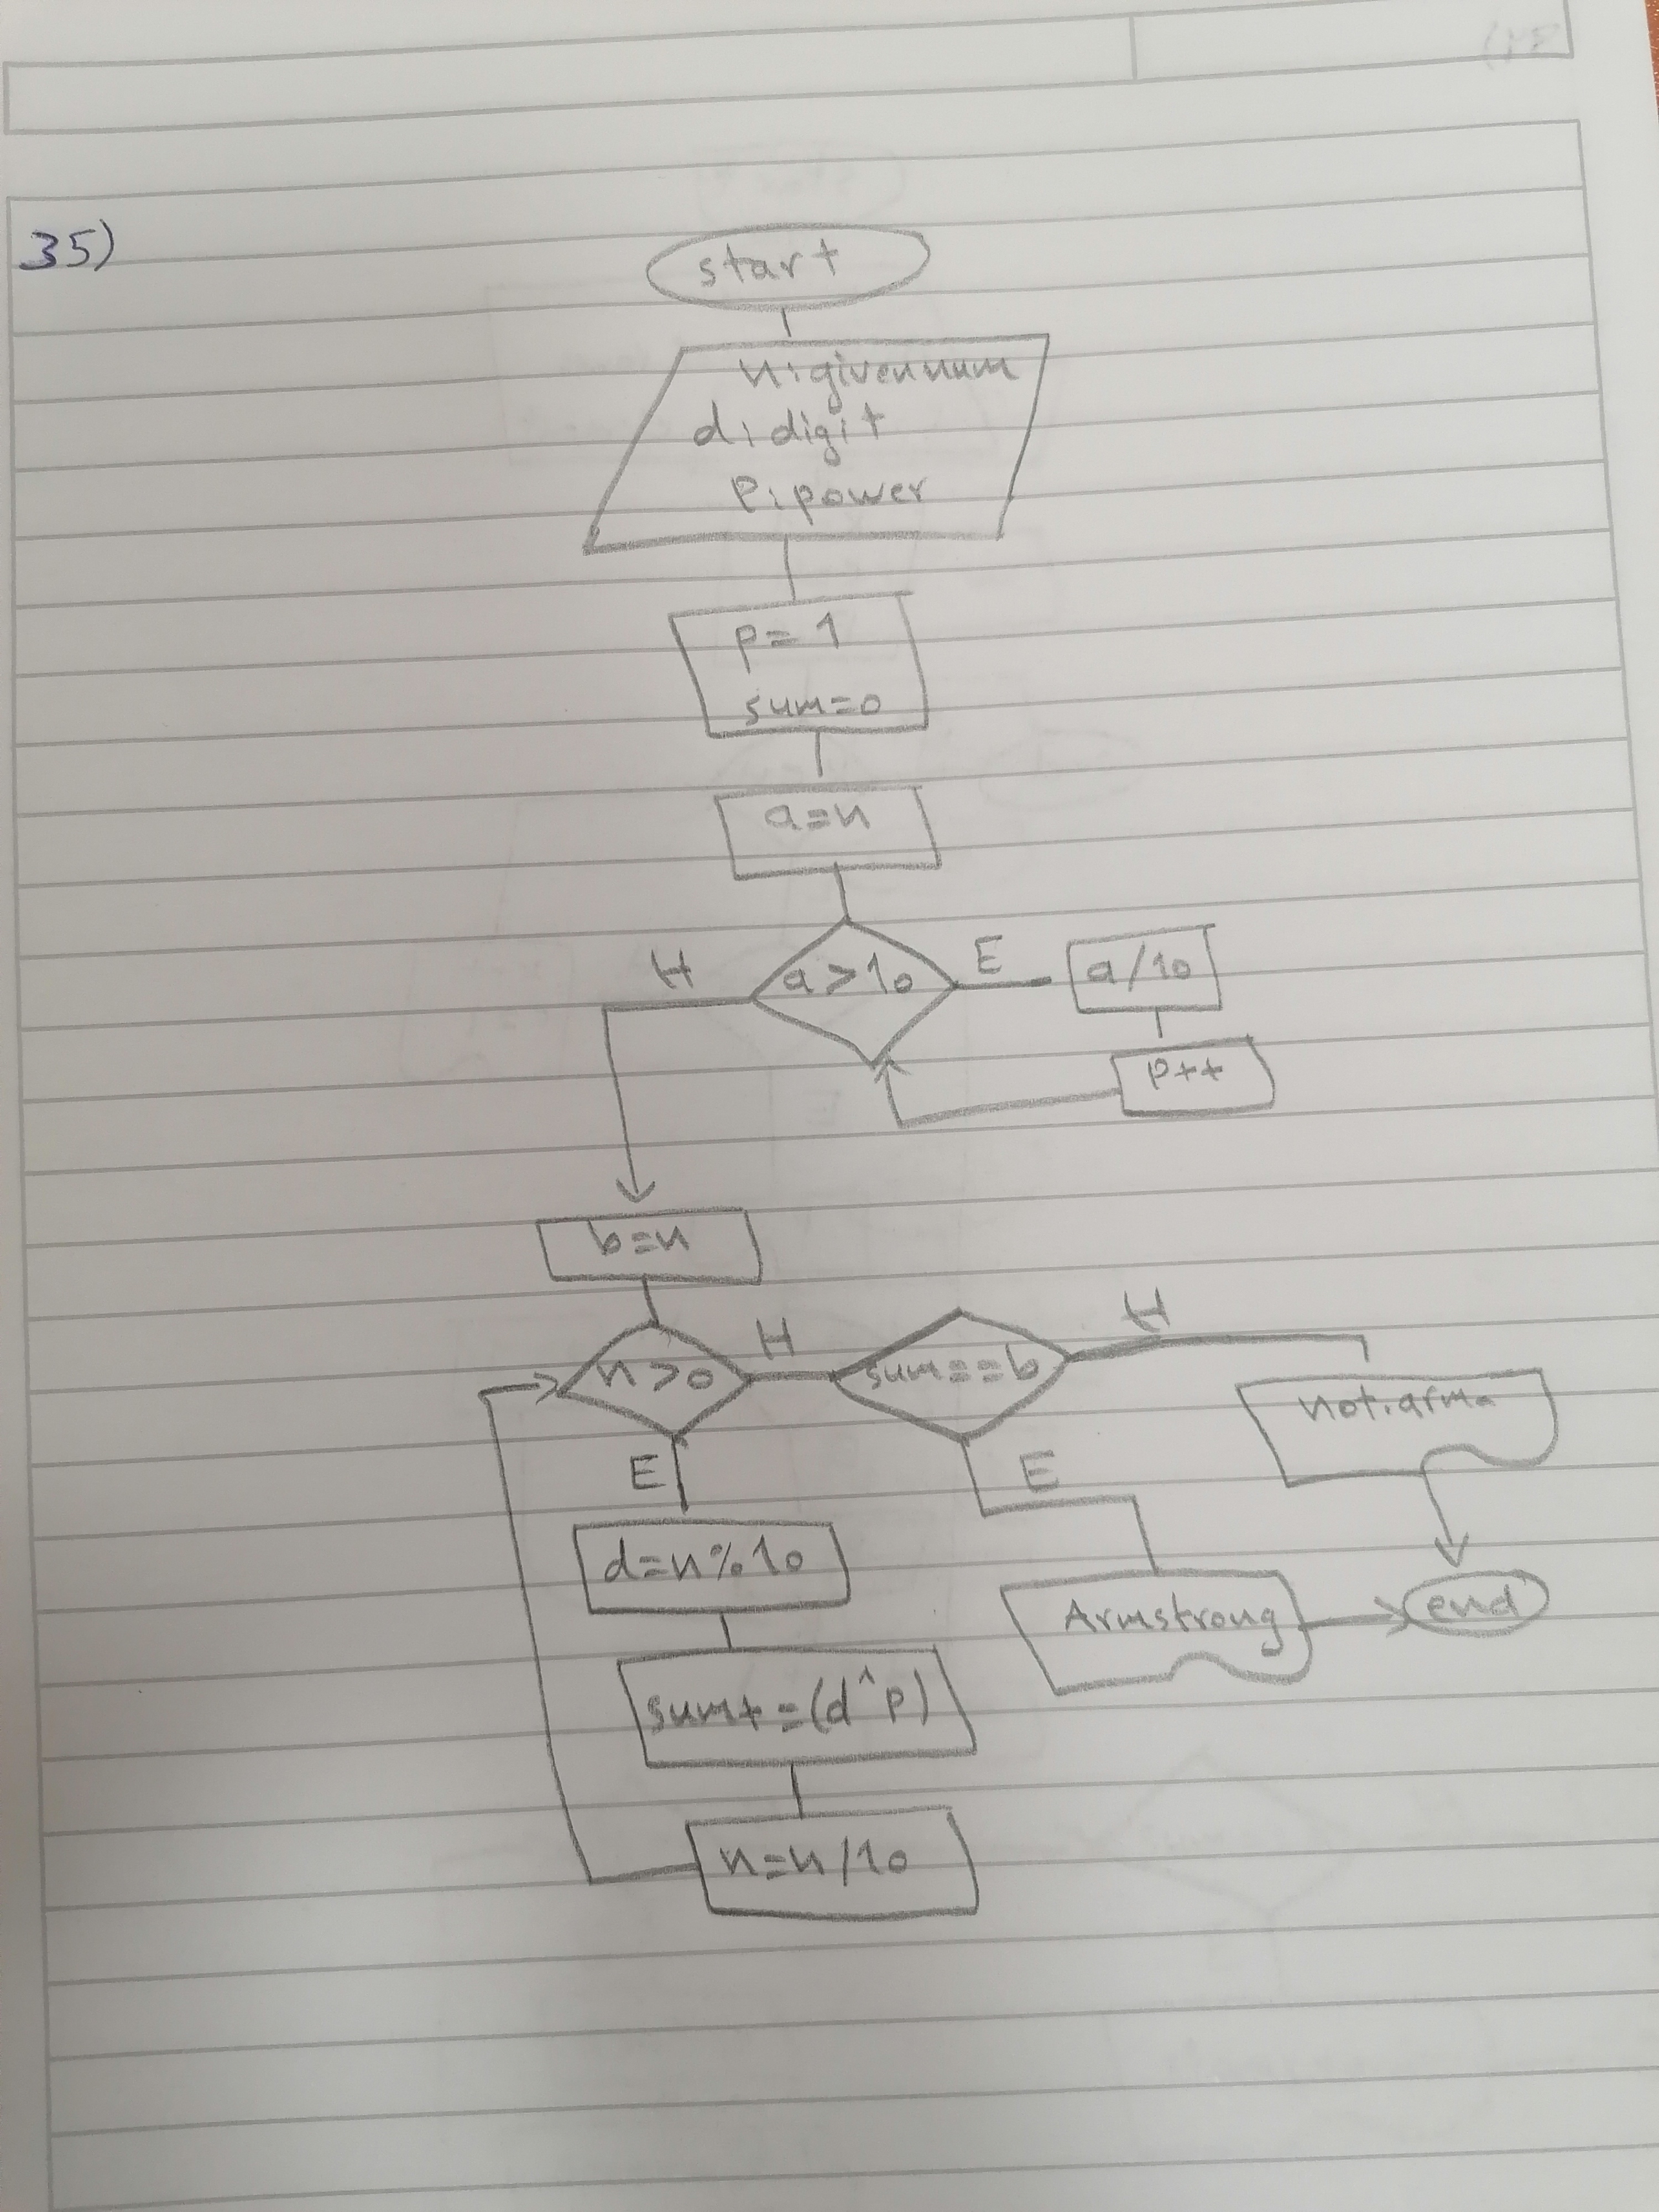 35)
start
n:givennum
d:digit
P:power
p=1
sum=0
a=n
H
a>10
E
a/10
P++
b=n
n>0
H
sum==b
H
not.arm.
E
E
d=n%10
Armstrong
end
sum+=(d^p)
n=n/10